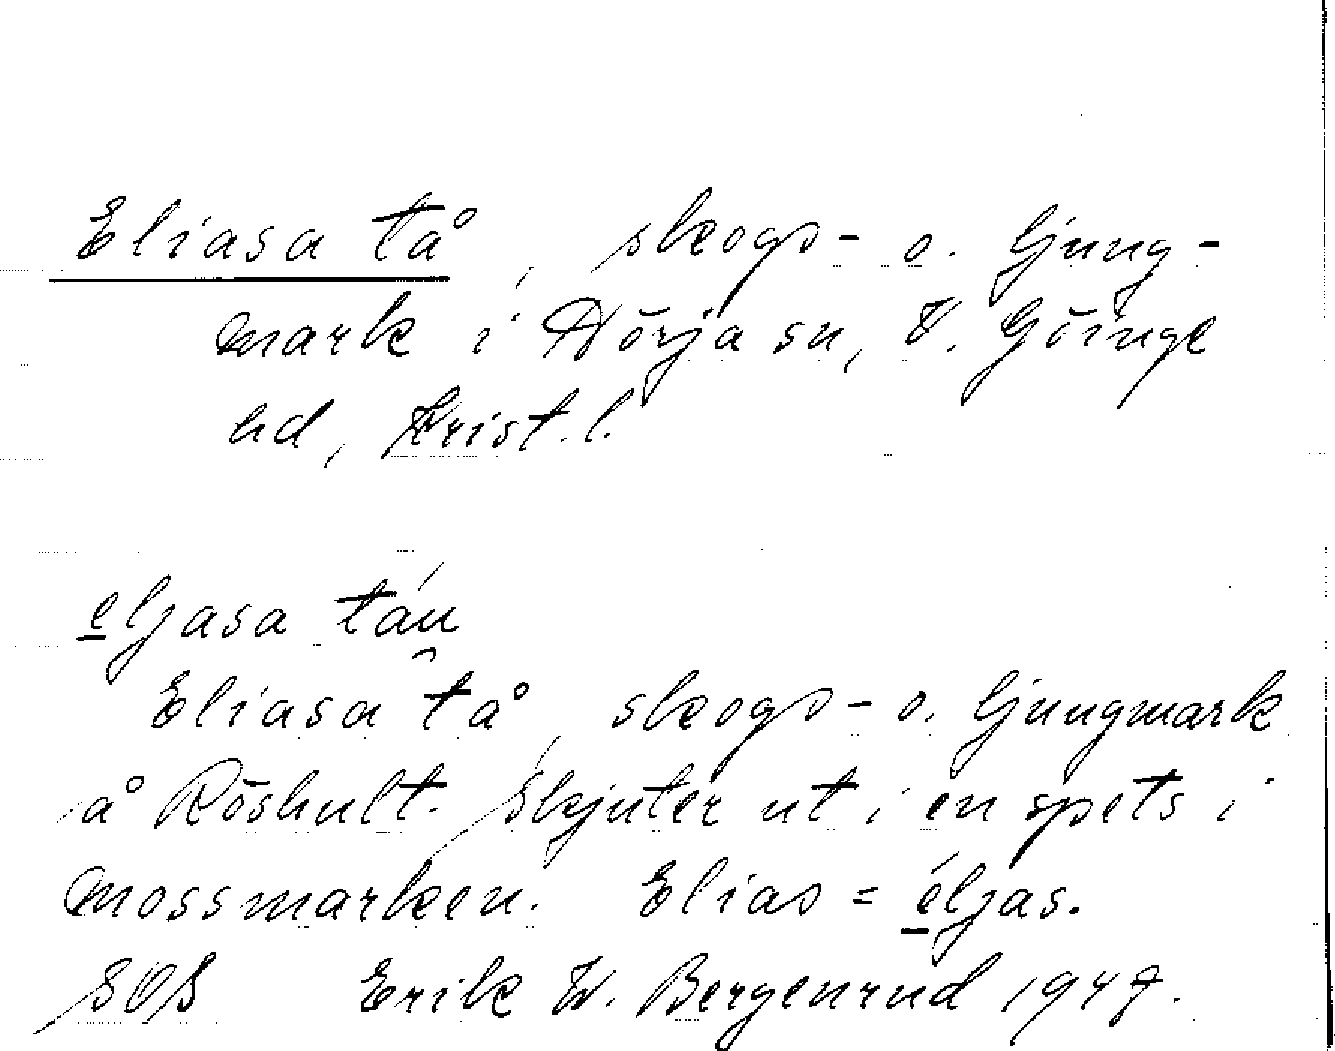 Eliasa tå, skogs- o. ljung-
mark i Nörja sn, V. Göinge
hd, Krist. l.
eljasa tán
Eliasa tå, skogs- o. ljungmark
å Röshult. Skjuter ut i en spets i
mossmarken. Elias = éljas.
SOS Erik W. Bergenrud 1947.